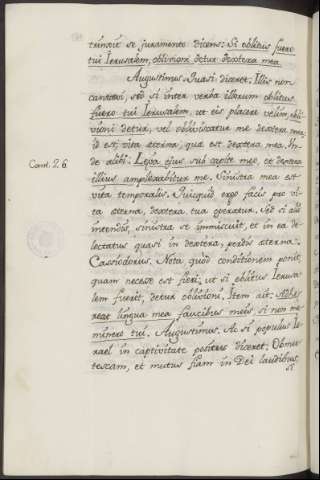 trinxit se juramento dicens: Si oblitus fuero
tui Ierusalem, oblivioni detur dextera mea.
Augustinus. Quasi diceret: Illis non
cantavi, sed si inter verba illorum oblitus
fuero tui Ierusalem, ut eis placere velim, obli-
vioni detur, vel obliviscatur me dextera mea,
id est, vita æterna, quæ est dextera mea. In-
de alibi: Leva ejus sub capite meo, et dextera
illius amplexabitur me. Sinistra mea est
vita temporalis. Quicquid ergo facis pro vi-
ta æterna, dextera tua operatur. Sed si aliò
intendis, sinistra se immiscuit, et in ea de-
lectatus quasi in dextera, perdis æterna.
Cassiodorus. Nota, quòd conditionem ponit,
quam necesse est fieri, ut si oblitus Ierusa-
lem fuerit, detur oblivioni. Item ait: Adhæ-
reat lingua mea faucibus meis, si non me-
minero tui. Augustinus. Ac si populus Is-
rael in captivitate positus diceret: Obmu-
tescam, et mutus fiam in Dei laudibus,
Cant. 2. 6.